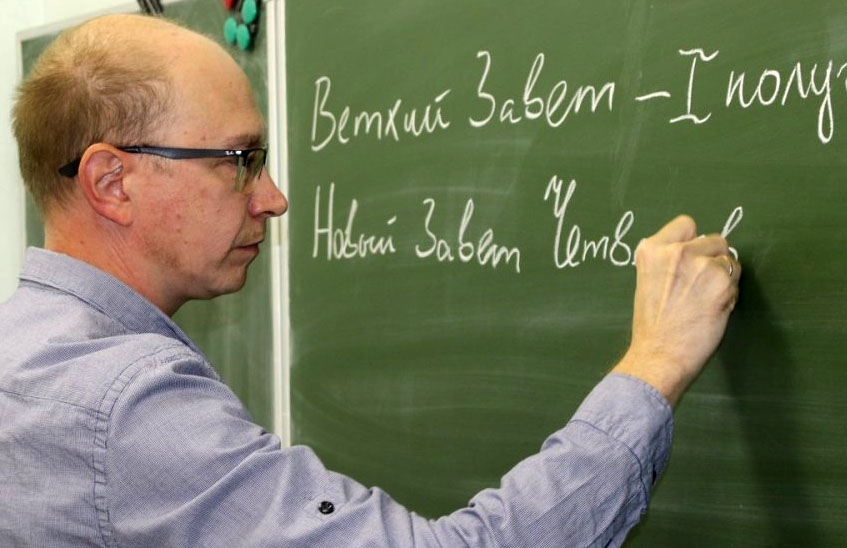 Ветхий Завет - I полу
Новый Завет